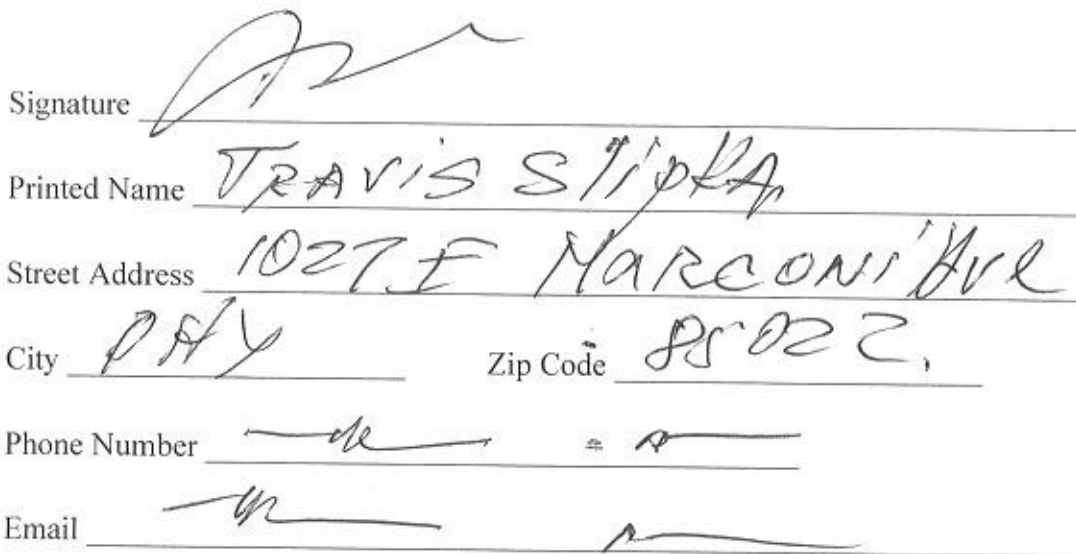 Signature
Printed Name TRAVIS Slipka
Street Address 1027 E MARCONI Ave
City PHX Zip Code 85022
Phone Number
Email